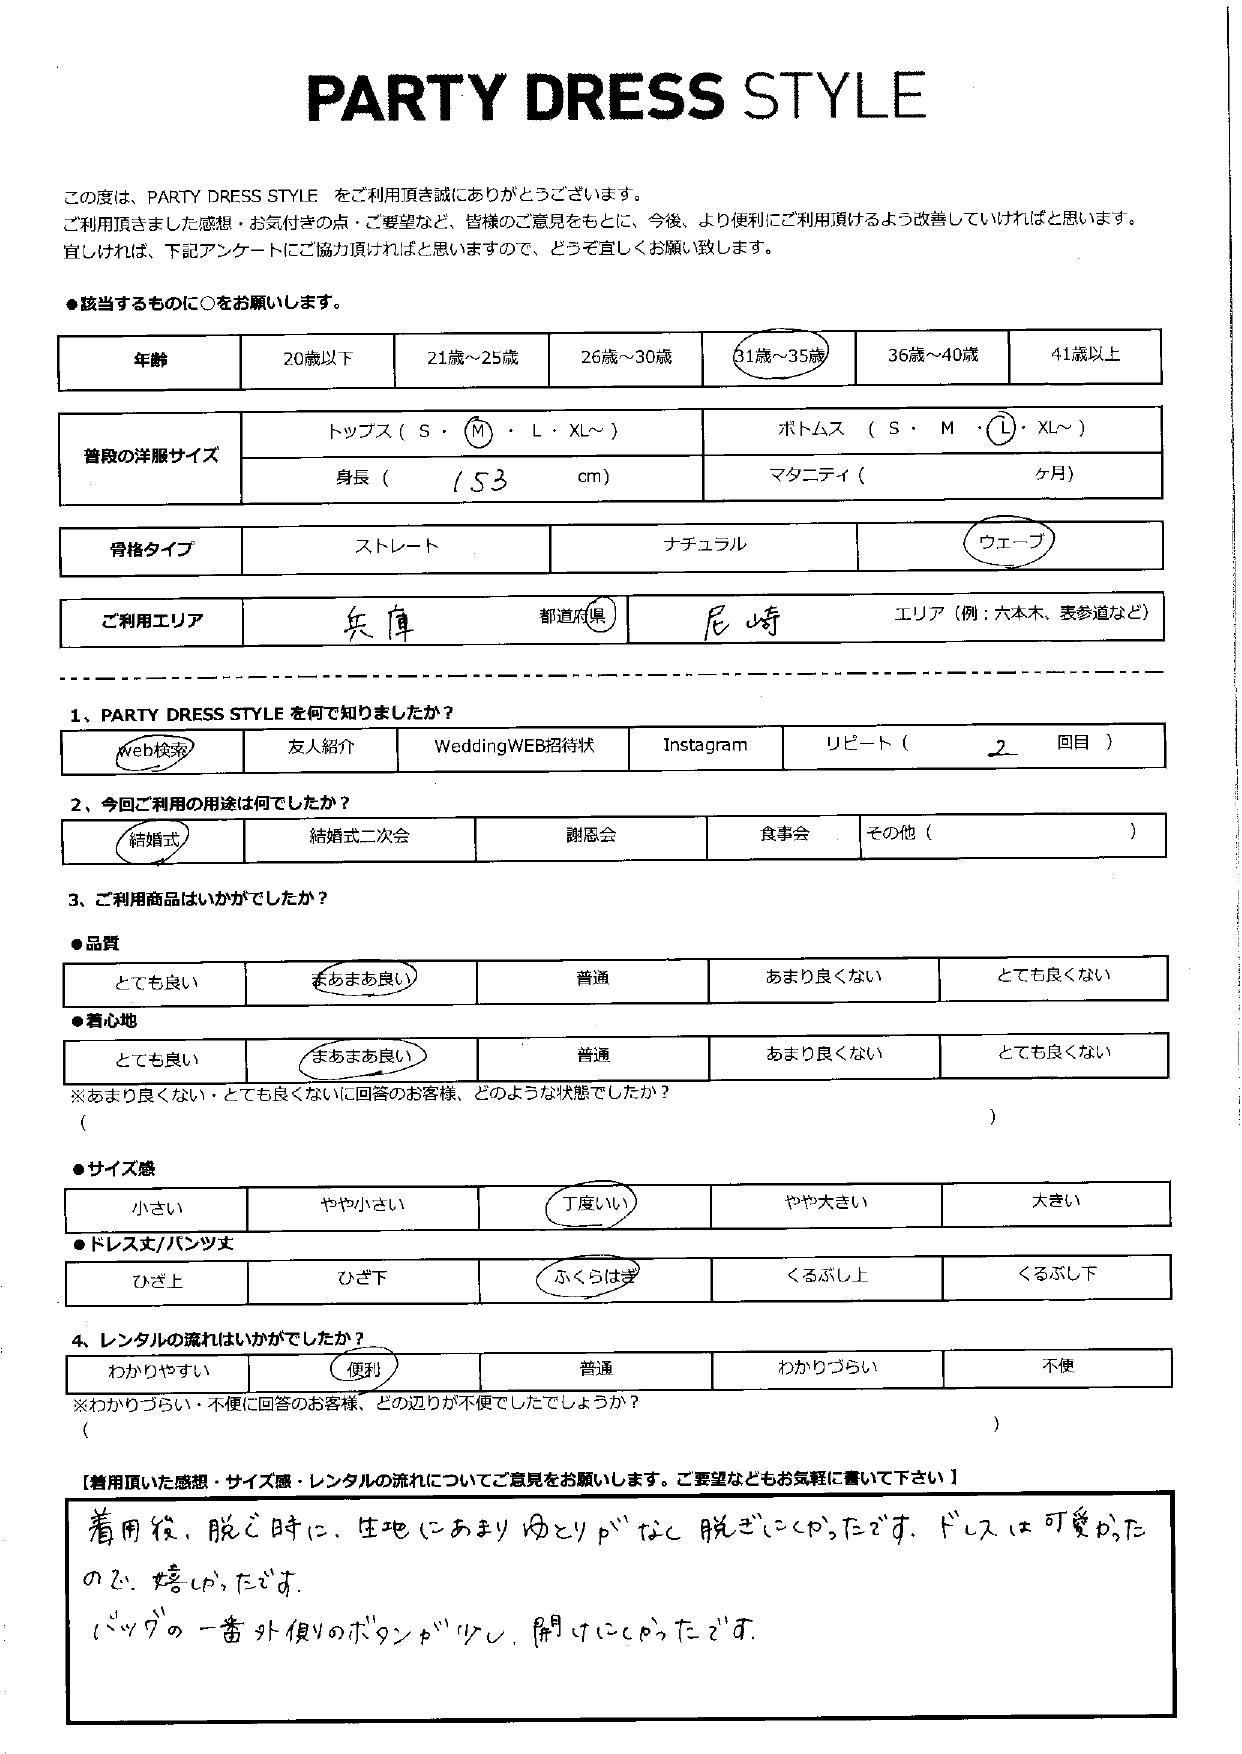 PARTY DRESS STYLE
この度は、PARTY DRESS STYLE をご利用頂き誠にありがとうございます。
ご利用頂きました感想・お気付きの点・ご要望など、皆様のご意見をもとに、今後、より便利にご利用頂けるよう改善していければと思います。
宜しければ、下記アンケートにご協力頂ければと思いますので、どうぞ宜しくお願い致します。
●該当するものに○をお願いします。
年齢 20歳以下 21歳～25歳 26歳～30歳 31歳～35歳 36歳～40歳 41歳以上
普段の洋服サイズ トップス ( S ・ M ・ L ・ XL～ ) ボトムス ( S ・ M ・ L ・ XL～ )
身長 ( 153 cm) マタニティ ( ヶ月)
骨格タイプ ストレート ナチュラル ウェーブ
ご利用エリア 兵庫 都道府県 尼崎 エリア（例：六本木、表参道など）
1、PARTY DRESS STYLE を何で知りましたか？
web検索 友人紹介 WeddingWEB招待状 Instagram リピート ( 2 回目 )
2、今回ご利用の用途は何でしたか？
結婚式 結婚式二次会 謝恩会 食事会 その他 ( )
3、ご利用商品はいかがでしたか？
●品質
とても良い まあまあ良い 普通 あまり良くない とても良くない
●着心地
とても良い まあまあ良い 普通 あまり良くない とても良くない
※あまり良くない・とても良くないに回答のお客様、どのような状態でしたか？
( )
●サイズ感
小さい やや小さい 丁度いい やや大きい 大きい
●ドレス丈/パンツ丈
ひざ上 ひざ下 ふくらはぎ くるぶし上 くるぶし下
4、レンタルの流れはいかがでしたか？
わかりやすい 便利 普通 わかりづらい 不便
※わかりづらい・不便に回答のお客様、どの辺りが不便でしたでしょうか？
( )
【着用頂いた感想・サイズ感・レンタルの流れについてご意見をお願いします。ご要望などもお気軽に書いて下さい 】
着用後、脱ぐ時に、生地にあまりゆとりがなく脱ぎにくかったです。ドレスは可愛かった
ので、嬉しかったです。
バッグの一番外側のボタンが少し、開けにくかったです。